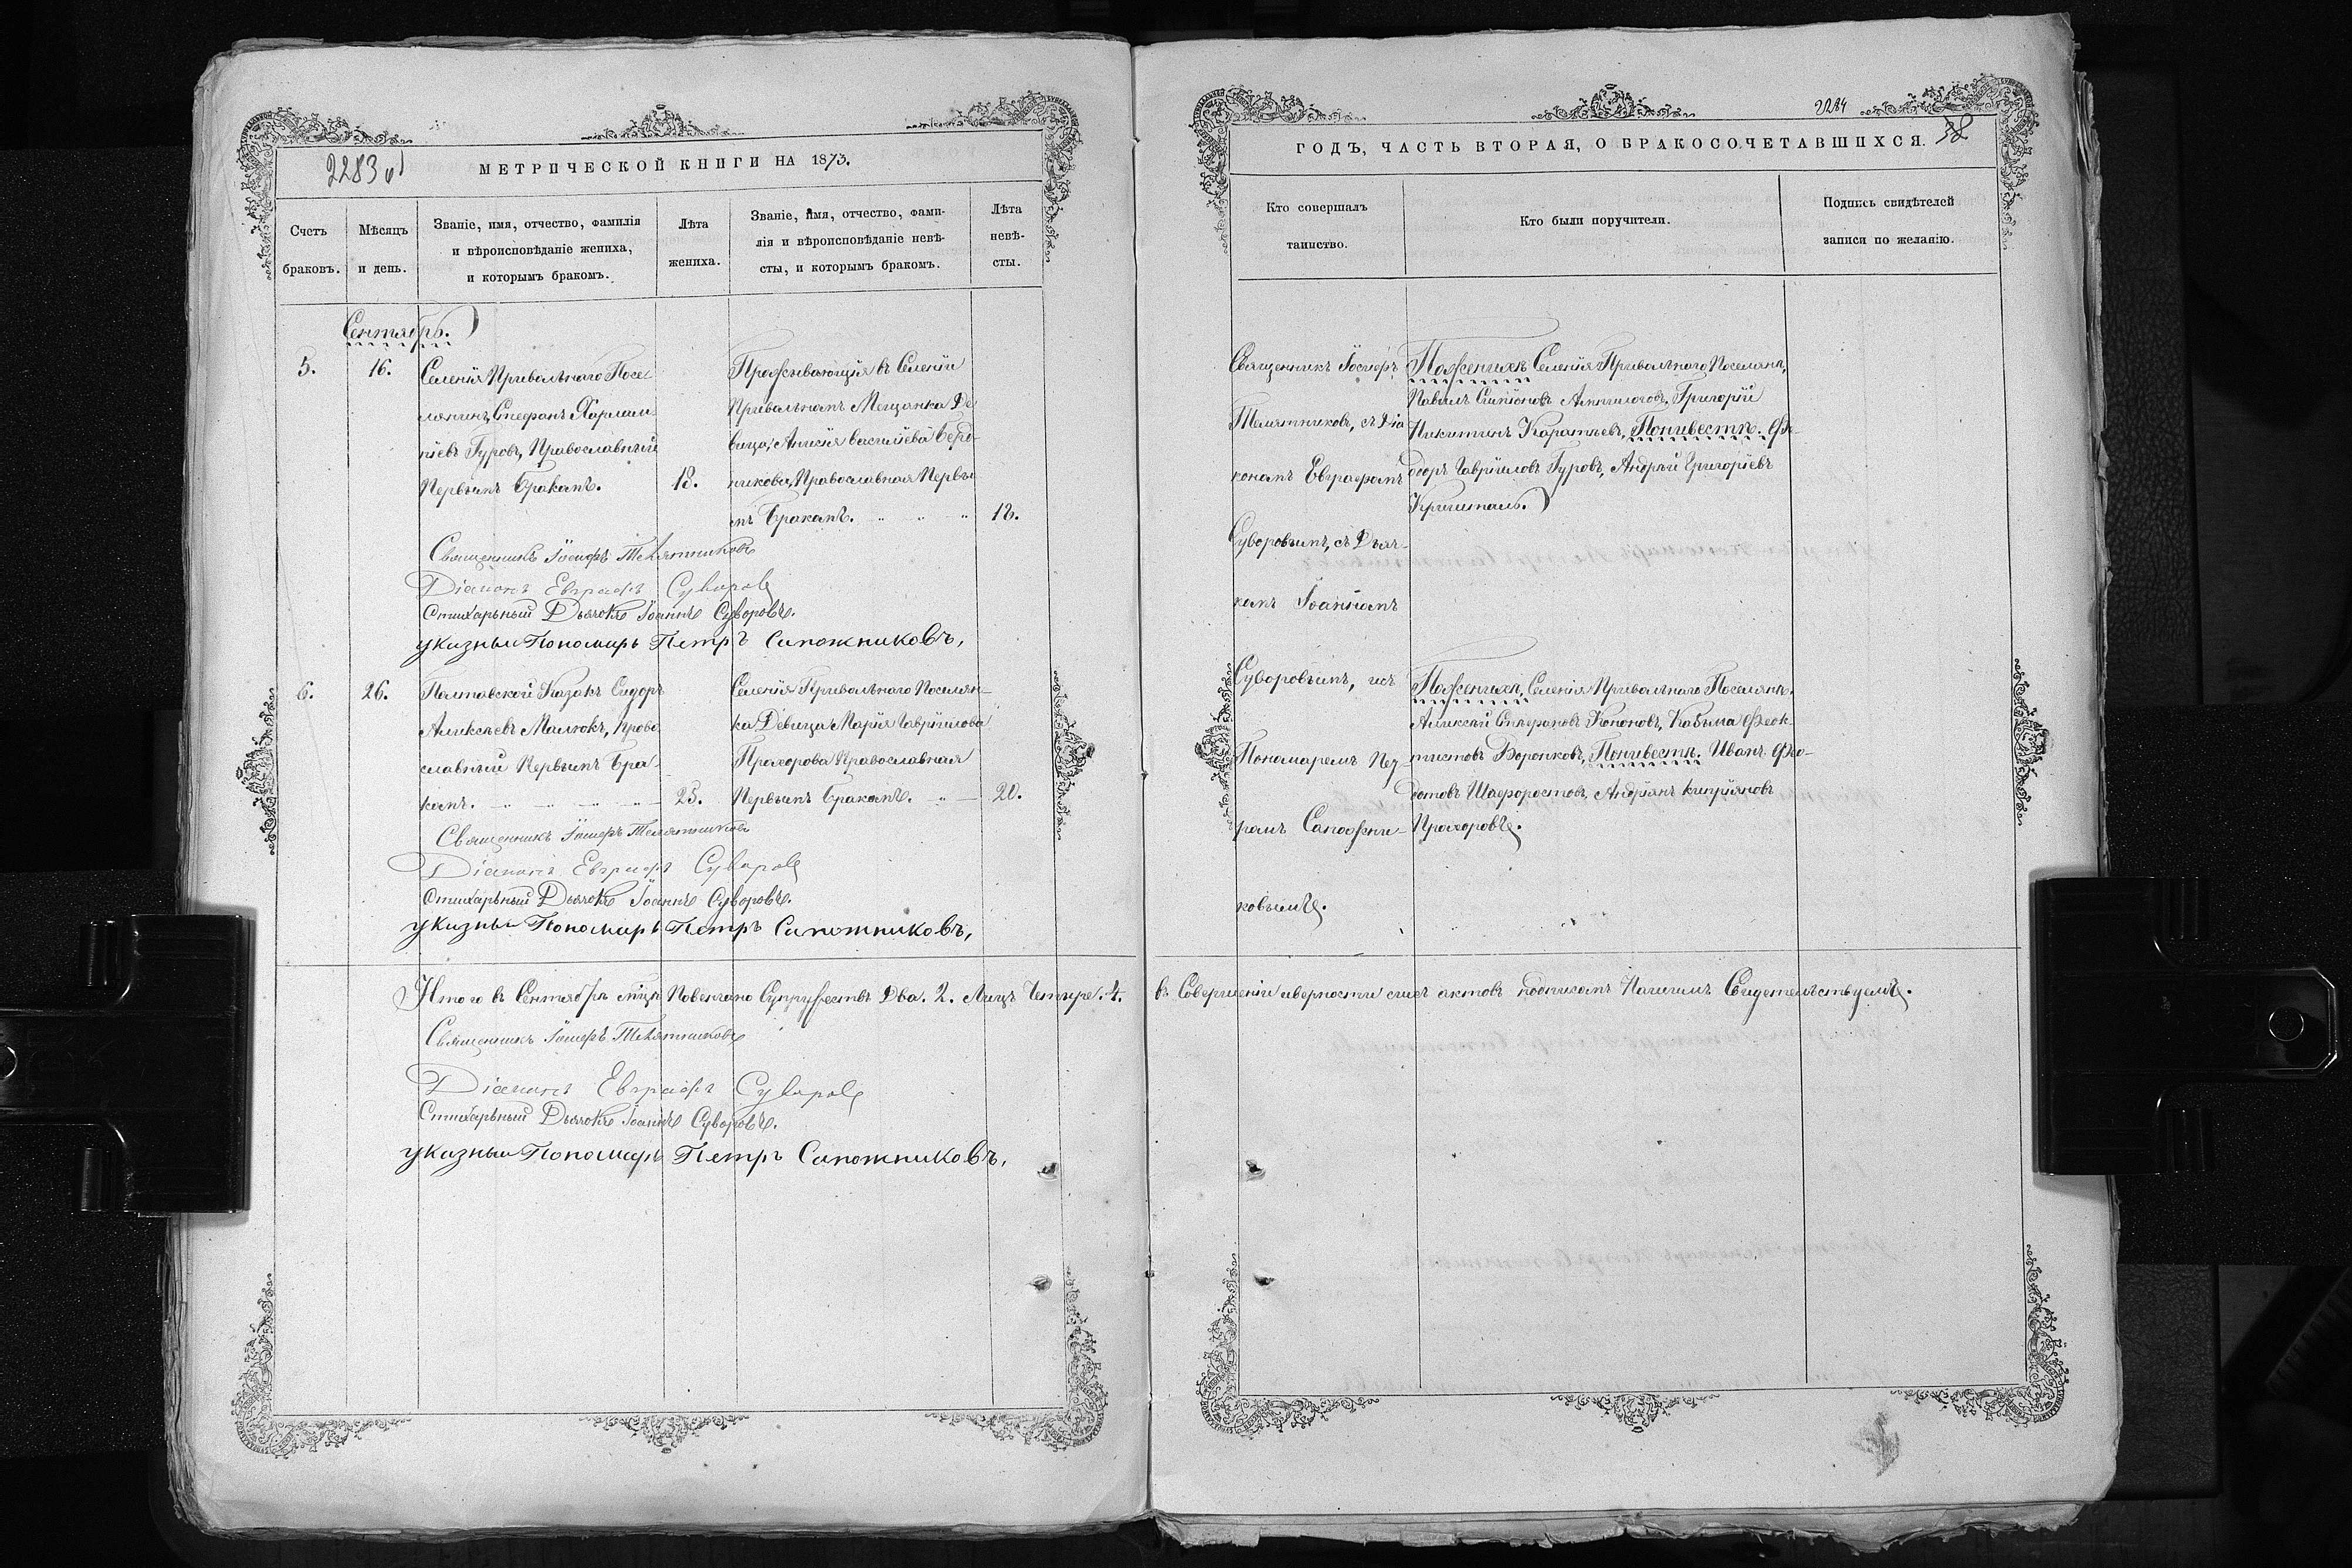 2283 об
МЕТРИЧЕСКОЙ КНИГИ НА 1873.
Счетъ
браковъ.
Мѣсяцъ
и день.
Званіе, имя, отчество, фамилія
и вѣроисповѣданіе жениха,
и которымъ бракомъ.
Лѣта
жениха.
Званіе, имя, отчество, фами-
лія и вѣроисповѣданіе невѣ-
сты, и которымъ бракомъ.
Лѣта
невѣ-
сты.
Сентябрь.
5.
16.
Селенія Привольнаго Посе
лянинъ, Стефанъ Харлам
піевъ Гуровъ, Православный
Первымъ Бракомъ.
18.
Проживающія въ Селеніи
Привольномъ Мещанка Де
вица, Анисія Васильева Берд
никова, Православная Первы
мъ Бракомъ.
18.
Священникъ Іосифъ Телятниковъ
Діаконъ Евграфъ Суворовъ
Стихарьный Дьячокъ Іоаннъ Суворовъ.
указный Пономарь Петръ Сапожниковъ,
6.
26.
Полтавской Казакъ Сидоръ
Алексѣевъ Малюкъ, Право
славный Первымъ Бра
комъ.
25.
Селенія Привольнаго Поселян-
ка Девица Марія Гавріилова
Прохорова Православная
Первымъ Бракомъ.
20.
Священникъ Іосифъ Телятниковъ
Діаконъ Евграфъ Суворовъ
Стихарьный Дьячокъ Іоаннъ Суворовъ.
указный Пономарь Петръ Сапожниковъ,
Итого въ Сентябрѣ мцѣ Повенчано Супружествъ Два. 2. Лицъ Четыре. 4.
Священникъ Іосифъ Телятниковъ
Діаконъ Евграфъ Суворовъ
Стихарьный Дьячокъ Іоаннъ Суворовъ.
указный Пономарь Петръ Сапожниковъ,
2284
38
ГОДЪ, ЧАСТЬ ВТОРАЯ, О БРАКОСОЧЕТАВШИХСЯ.
Кто совершалъ
таинство.
Кто были поручители.
Подпись свидѣтелей
записи по желанію.
Священникъ Іосифъ
Телятниковъ, съ Діа
кономъ Евграфомъ
Суворовымъ, съ Дьяч-
комъ Іоанномъ
Суворовымъ, исъ
Пономаремъ Пет
ромъ Сапожни-
ковымъ.
Поженихѣ Селенія Привольнаго Поселяне,
Павелъ Григорій
Никитинъ Понивестѣ. Фе
доръ Гавріиловъ Гуровъ, Андрей Григоріевъ
Поженихѣ, Селенія Привольнаго Поселяне.
Алексѣй Стефановъ Кононовъ, Козьма Феок-
тистовъ Воронковъ, Понивестѣ. Иванъ Фео-
Шафоростовъ, Андріянъ Кипріяновъ
Прохоровъ.
въ Совершеніи иверности сихъ актовъ подписомъ Нашимъ Свидетельствуемъ.